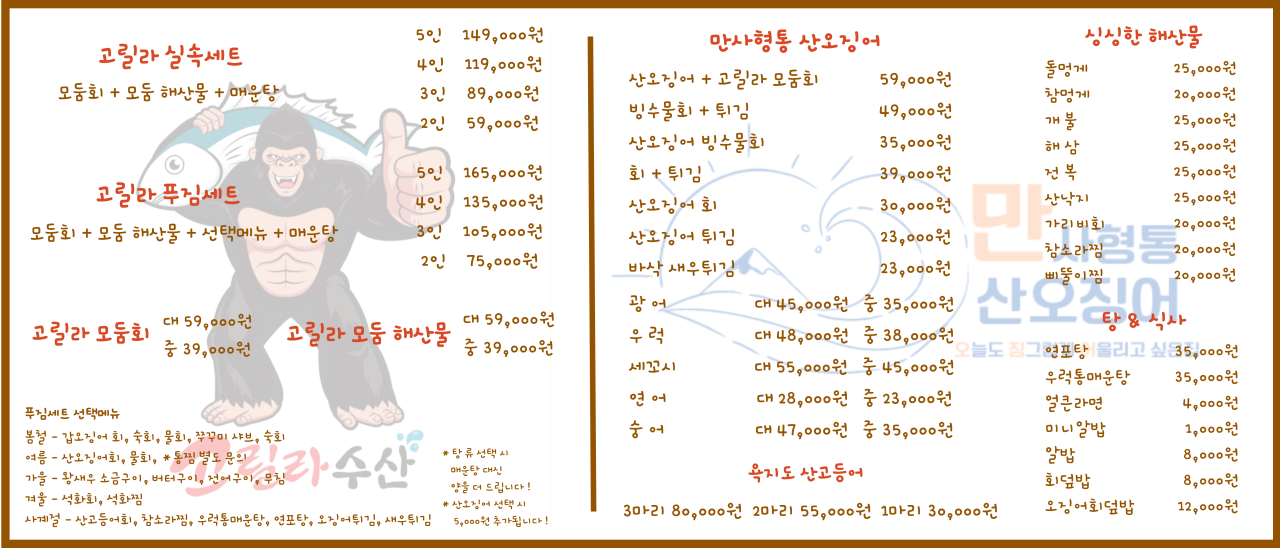 고릴라 실속세트
모둠회 + 모둠 해산물 + 매운탕
5인 149,000원
4인 119,000원
3인 89,000원
2인 59,000원
고릴라 푸짐세트
모둠회 + 모둠 해산물 + 선택메뉴 + 매운탕
5인 165,000원
4인 135,000원
3인 105,000원
2인 75,000원
고릴라 모둠회
대 59,000원
중 39,000원
고릴라 모둠 해산물
대 59,000원
중 39,000원
푸짐세트 선택메뉴
봄철 - 갑오징어 회, 숙회, 물회, 쭈꾸미 샤브, 숙회
여름 - 산오징어회, 물회, * 통찜 별도 문의
가을 - 왕새우 소금구이, 버터구이, 전어구이, 무침
겨울 - 석화회, 석화찜
사계절 - 산고등어회, 참소라찜, 우럭통매운탕, 연포탕, 오징어튀김, 새우튀김
고릴라수산
* 탕 류 선택 시
매운탕 대신
양을 더 드립니다 !
* 산오징어 선택 시
5,000원 추가됩니다 !
만사형통 산오징어
산오징어 + 고릴라 모둠회 59,000원
빙수물회 + 튀김 49,000원
산오징어 빙수물회 35,000원
회 + 튀김 39,000원
산오징어 회 30,000원
산오징어 튀김 23,000원
바삭 새우튀김 23,000원
광 어 대 45,000원 중 35,000원
우 럭 대 48,000원 중 38,000원
세꼬시 대 55,000원 중 45,000원
연 어 대 28,000원 중 23,000원
숭 어 대 47,000원 중 35,000원
욕지도 산고등어
3마리 80,000원 2마리 55,000원 1마리 30,000원
만사형통
산오징어
오늘도 징그럽게 어울리고 싶은집
싱싱한 해산물
돌멍게 25,000원
참멍게 20,000원
개 불 25,000원
해 삼 25,000원
전 복 25,000원
산낙지 25,000원
가리비회 20,000원
참소라찜 20,000원
삐뚤이찜 20,000원
탕 & 식사
연포탕 35,000원
우럭통매운탕 35,000원
얼큰라면 4,000원
미니알밥 1,000원
알밥 8,000원
회덮밥 8,000원
오징어회덮밥 12,000원